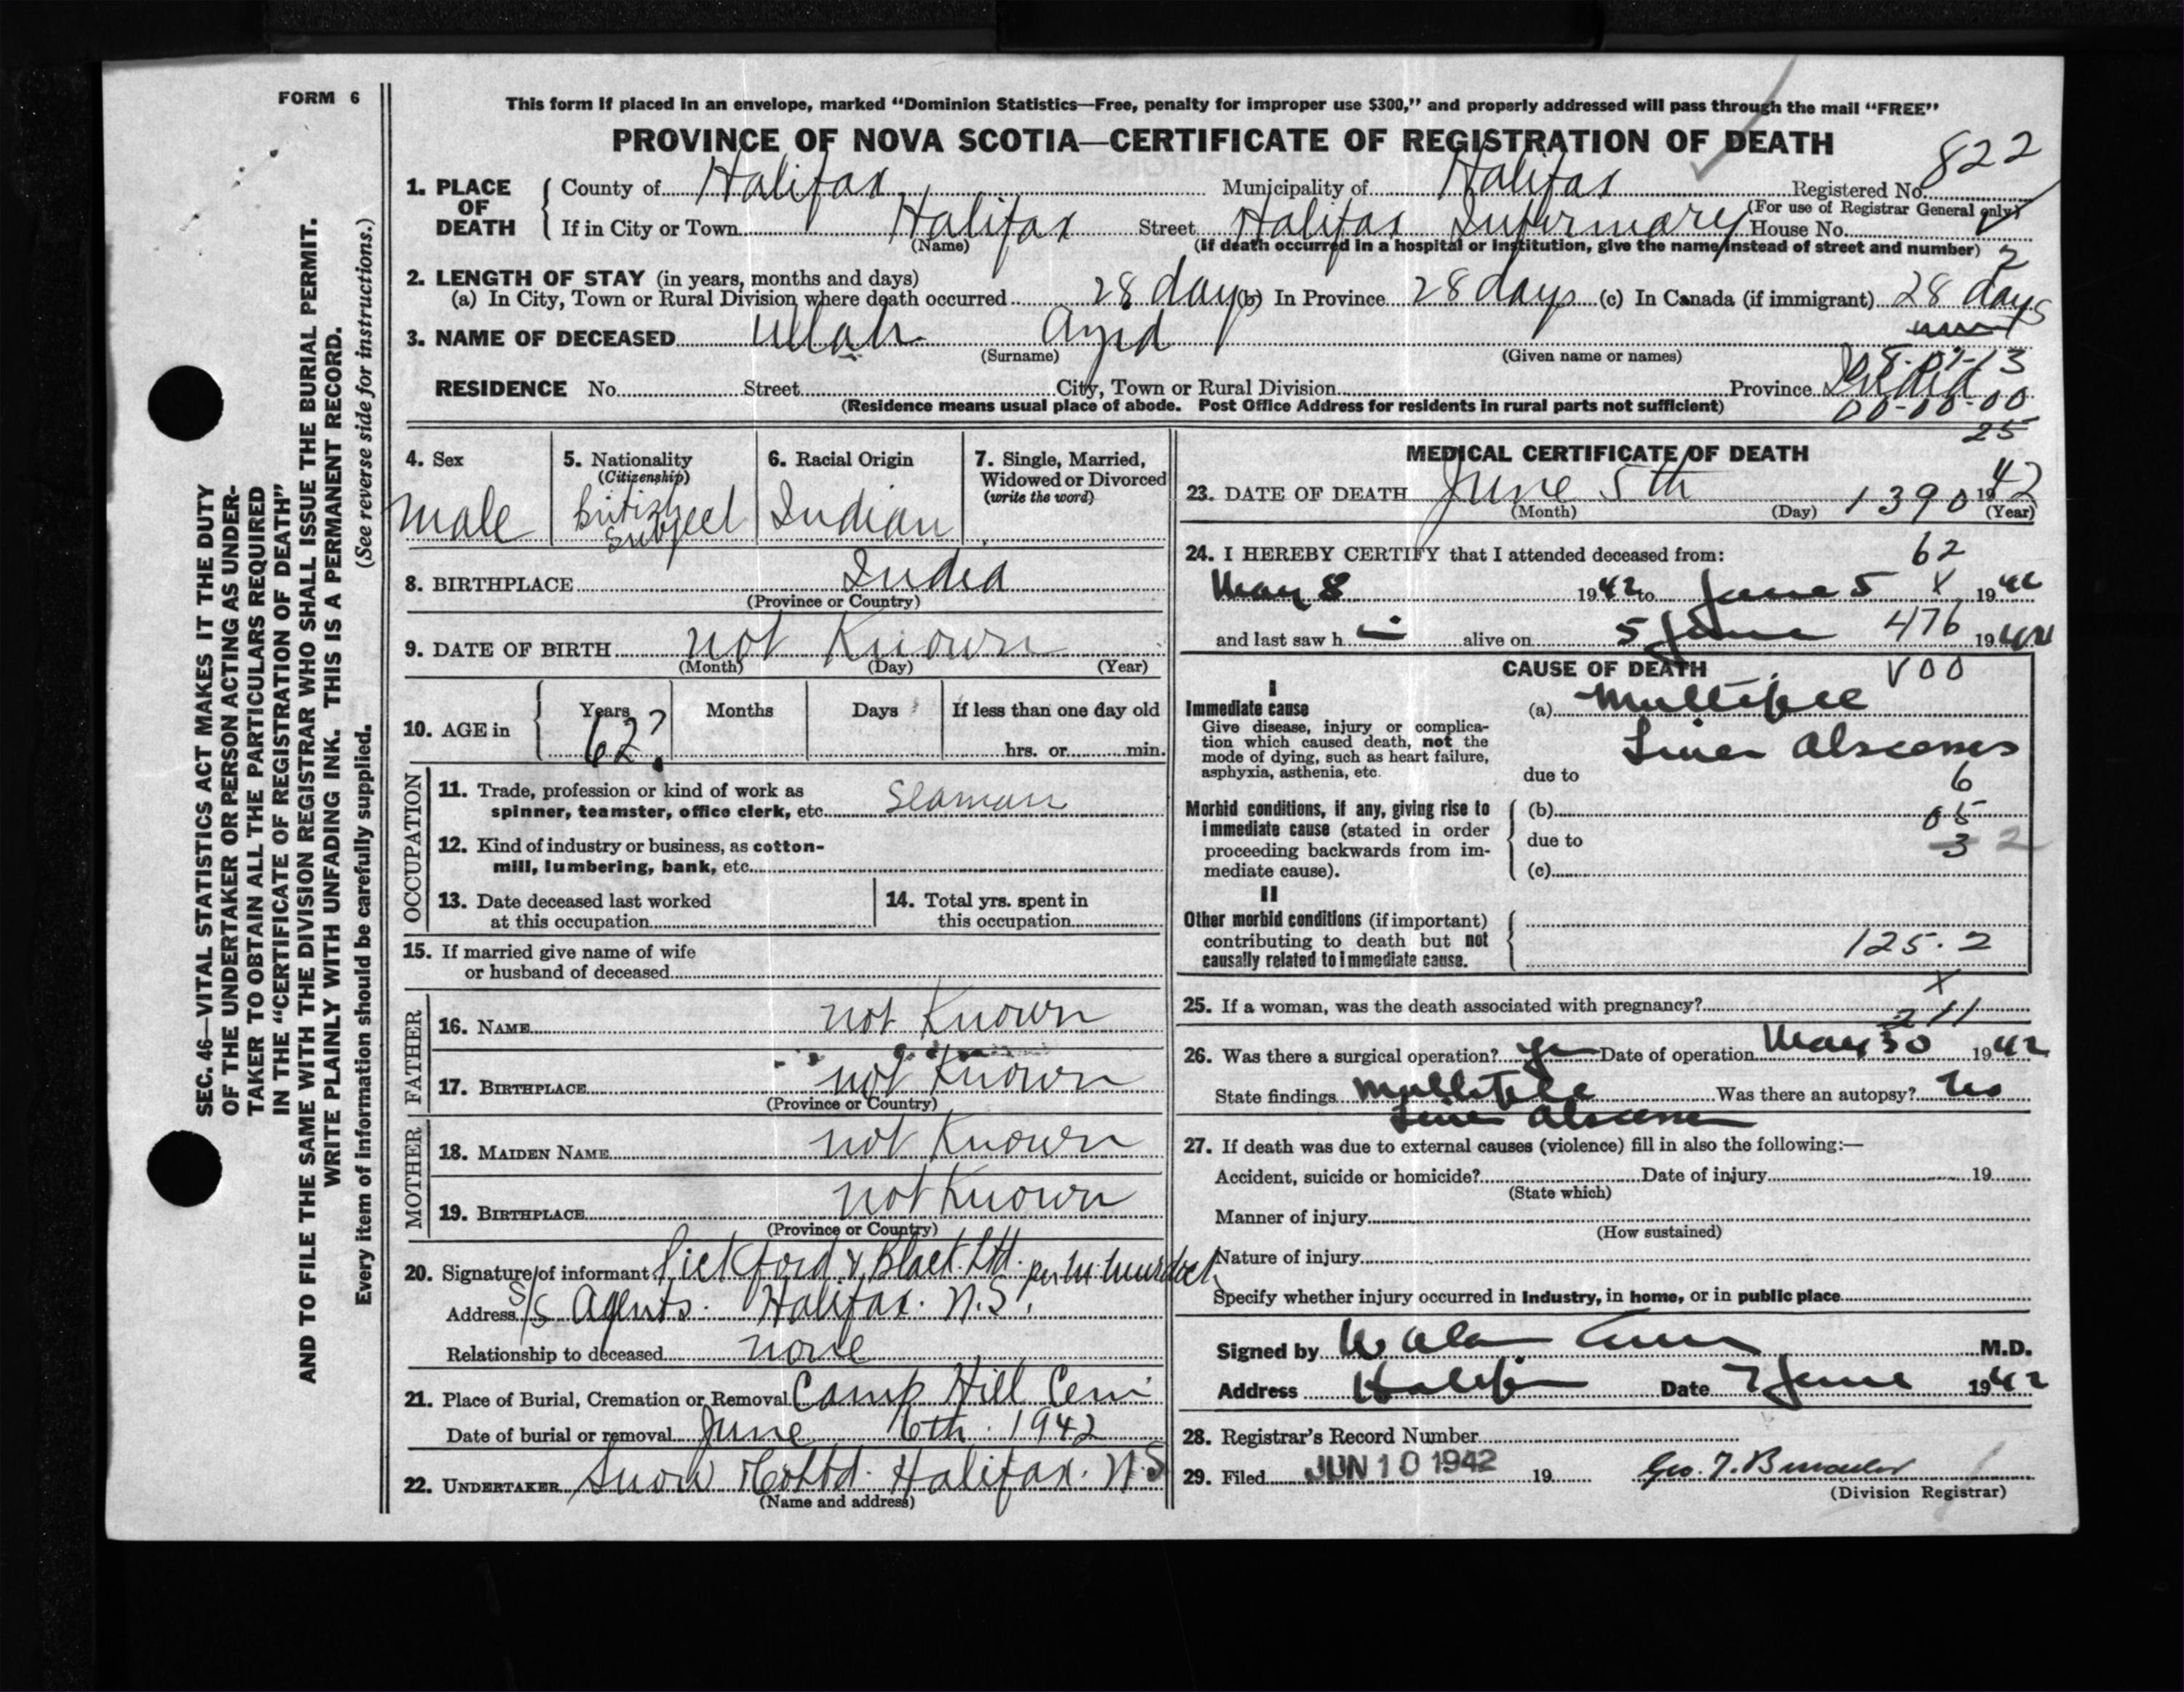 FORM 6
This form if placed in an envelope, marked "Dominion Statistics—Free, penalty for improper use $300," and properly addressed will pass through the mail "FREE"
PROVINCE OF NOVA SCOTIA—CERTIFICATE OF REGISTRATION OF DEATH
822
1. PLACE OF DEATH
County of Halifax Municipality of Halifax Registered No.
(For use of Registrar General only)
If in City or Town Halifax Street Halifax Infirmary House No.
(Name) (If death occurred in a hospital or institution, give the name instead of street and number)
2
2. LENGTH OF STAY (in years, months and days)
(a) In City, Town or Rural Division where death occurred 28 days (b) In Province 28 days (c) In Canada (if immigrant) 28 days
3. NAME OF DECEASED Ullah Ayid
(Surname) (Given name or names)
RESIDENCE No. Street City, Town or Rural Division Province India
(Residence means usual place of abode. Post Office Address for residents in rural parts not sufficient)
00-00-00
25
4. Sex
male
5. Nationality
(Citizenship)
British
Subject
6. Racial Origin
Indian
7. Single, Married,
Widowed or Divorced
(write the word)
8. BIRTHPLACE India
(Province or Country)
9. DATE OF BIRTH not Known
(Month) (Day) (Year)
10. AGE in
Years Months Days If less than one day old
62? hrs. or min.
OCCUPATION
11. Trade, profession or kind of work as
spinner, teamster, office clerk, etc. Seaman
12. Kind of industry or business, as cotton-
mill, lumbering, bank, etc.
13. Date deceased last worked
at this occupation
14. Total yrs. spent in
this occupation
15. If married give name of wife
or husband of deceased
FATHER
16. NAME not Known
17. BIRTHPLACE not Known
(Province or Country)
MOTHER
18. MAIDEN NAME not Known
19. BIRTHPLACE not Known
(Province or Country)
20. Signature of informant Pickford & Black Ltd. per M. Murdock
Address S/S Agents. Halifax. N.S.
Relationship to deceased none
21. Place of Burial, Cremation or Removal Camp Hill Cem
Date of burial or removal June 6th. 1942
22. UNDERTAKER Snow & Co Ltd. Halifax. N.S
(Name and address)
MEDICAL CERTIFICATE OF DEATH
23. DATE OF DEATH June 5th 1390 1942
(Month) (Day) (Year)
24. I HEREBY CERTIFY that I attended deceased from:
62
May 8 1942 to June 5 X 1942
and last saw h im alive on 5 June 476 1942
CAUSE OF DEATH
V00
I
Immediate cause
Give disease, injury or complica-
tion which caused death, not the
mode of dying, such as heart failure,
asphyxia, asthenia, etc.
(a) Multiple
Liver Abscesses
due to
6
Morbid conditions, if any, giving rise to
immediate cause (stated in order
proceeding backwards from im-
mediate cause).
(b)
05
due to
3 2
(c)
II
Other morbid conditions (if important)
contributing to death but not
causally related to immediate cause.
125.2
X
25. If a woman, was the death associated with pregnancy?
211
26. Was there a surgical operation? yes Date of operation May 30 1942
State findings Multiple Was there an autopsy? No
Liver Abscesses
27. If death was due to external causes (violence) fill in also the following:—
Accident, suicide or homicide? Date of injury 19
(State which)
Manner of injury
(How sustained)
Nature of injury
Specify whether injury occurred in industry, in home, or in public place
Signed by M.D.
Address Halifax Date 7 June 1942
28. Registrar's Record Number
29. Filed JUN 10 1942 19
(Division Registrar)
SEC. 46—VITAL STATISTICS ACT MAKES IT THE DUTY
OF THE UNDERTAKER OR PERSON ACTING AS UNDER-
TAKER TO OBTAIN ALL THE PARTICULARS REQUIRED
IN THE "CERTIFICATE OF REGISTRATION OF DEATH"
AND TO FILE THE SAME WITH THE DIVISION REGISTRAR WHO SHALL ISSUE THE BURIAL PERMIT.
WRITE PLAINLY WITH UNFADING INK. THIS IS A PERMANENT RECORD.
Every item of information should be carefully supplied. (See reverse side for instructions.)